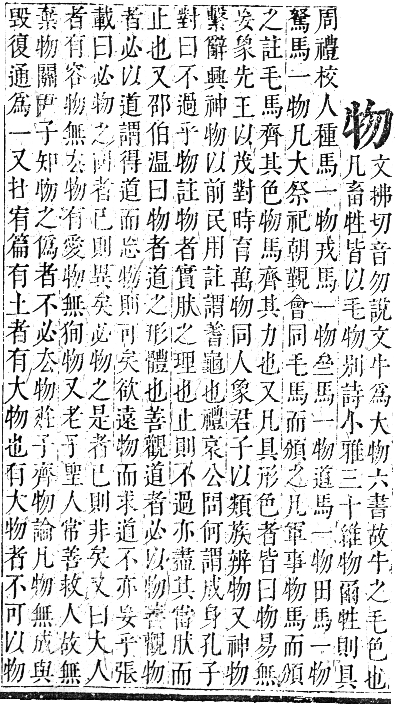 物
文拂切音勿說文牛爲大物六書故牛之毛色也
凡畜牲皆以毛物別詩小雅三十維物爾牲則具
周禮校人種馬一物戎馬一物亝馬一物道馬一物田馬一物
駑馬一物凡大祭祀朝覲會同毛馬而頒之凡軍事物馬而頒
之註毛馬齊其色物馬齊其力也又凡具形色者皆曰物易無
妄象先王以茂對時育萬物同人象君子以類族辨物又神物
繫辭興神物以前民用註謂蓍龜也禮哀公問何謂成身孔子
對曰不過乎物註物者實肰之理也止則不過亦盡其當肰而
止也又邵伯温曰物者道之形體也善觀道者必以物善觀物
者必以道謂得道而忘物則可矣欲遠物而求道不亦妄乎張
載曰必物之同者已則異矣必物之是者已則非矣又曰大人
者有容物無厺物有愛物無狥物又老子聖人常善救人故無
棄物關尹子知物之僞者不必厺物莊子齊物論凡物無成與
毀復通爲一又在宥篇有土者有大物也有大物者不可以物